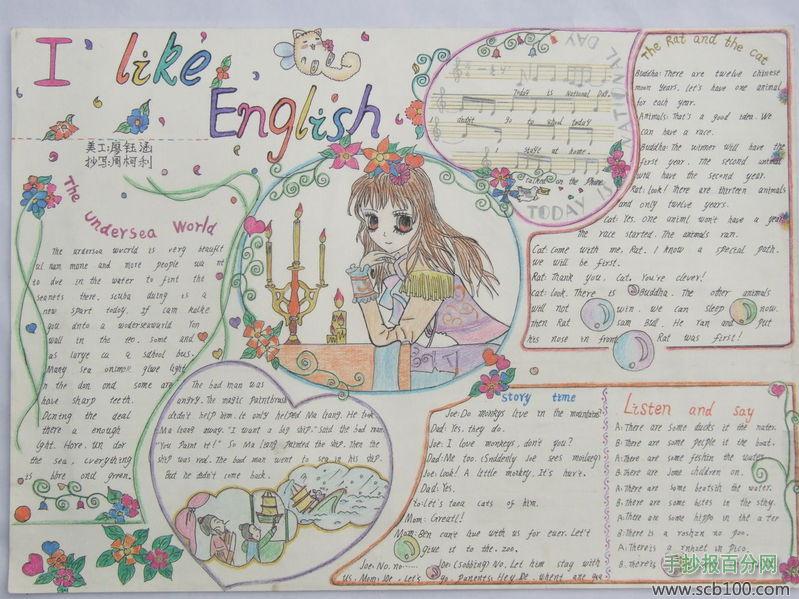 I like
English
美工:廖钰涵
抄写:周柯利
The undersea World
The undersea wvorld is very beautif
ul nan mone and more people wa nt
to dve in the water to fint the
seanets there, scuba duing is a
new spart today, If cam
you into a woderseaworld You
wall in the some and
as large cu a sdbool bus.
Many sea onimals glue light
in the don and some are
have sharp teeth.
the deal
there a enough
light. Hore. un der
the sea, everything
is blre and green.
Today is National Day.
didn't go to school today
stage at home.
Talked on the Phone.
TODAY IS NATIONAL DAY
The Rat and the cat
Buddha: There are twelve chinese
moon years. Let's have one animal
for each year.
Animals: That's a good idea. We
can have a race.
Buddha: The winner will have the
first year. The second animal
will have the second year.
Rat: look! There are thirteen animals
and only twelve years.
Cat: Yes. one animl won't have a year
The race started. The animals ran.
Cat: Come with me, Rat. I know a special path.
we will be first.
Rat: Thank you, Cat. You're clever!
Cat: look. There is Buddha. The other animals
will not win. we can sleep now.
then Rat saw Bull. He ran and put
his nose in front. Rat was first!
The bad man was
angry. The magic paintbrush
didn't help him. it only helped Ma liang. He took
Ma liang away. "I want a big ship," said the bad man.
"You Paint it!" So Ma liang painted the ship. Then the
ship was real. The bad man went to sea in his ship.
But he didn't come back.
story time
Joe: Do monkeys live in the mountains?
Dad: Yes, they do.
Joe: I love monkeys, don't you?
Dad: Me too. (Suddenly Joe sees monkey)
Joe: Look! A little monkey. It's hurt.
Dad: Yes.
to let's taea cars of him.
Mom: Grearl!
Mom: Ben can't lue with us for euer. Let's
glue it to the. zoo.
Joe: No. no..... Joe: (sobbing) No. Let him stay with
us, Mom: Joe, Let's go. Parents: Hey Be. whent are
Listen and say
A: There are some ducks it the nater.
B: There are some people it the boat.
A: There are some feshin the water.
B: There are some children on.
A: There are some in the water.
B: There are some in the sky.
A: There are some hippo in the a ter
B: There is a roshan no poo.
A: There is a in
B: There is
手抄报百分网
www.scb100.com